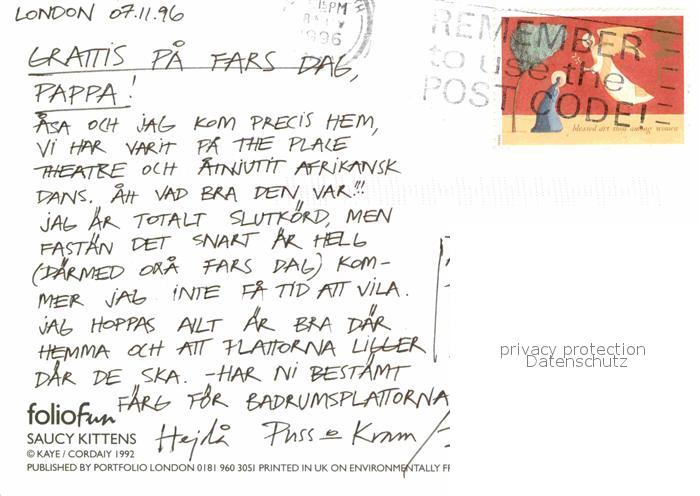 LONDON 07.11.96
15PM
1996
REMEMBER
to use the
POST CODE!
blessed art thou among women
GRATTIS PÅ FARS DAG,
PAPPA!
ÅSA OCH JAG KOM PRECIS HEM,
VI HAR VARIT PÅ THE PLACE
THEATRE OCH ÅTNJUTIT AFRIKANSK
DANS. ÅH VAD BRA DEN VAR!!!
JAG ÄR TOTALT SLUTKÖRD, MEN
FASTÄN DET SNART ÄR HELG
(DÄRMED OXÅ FARS DAG) KOM-
MER JAG INTE FÅ TID ATT VILA.
JAG HOPPAS ALLT ÄR BRA DÄR
HEMMA OCH ATT PLATTORNA LIGGER
DÄR DE SKA. -HAR NI BESTÄMT
FÄRG FÖR BADRUMSPLATTORNA
Hejdå Puss o Kram
privacy protection
Datenschutz
folioFun
SAUCY KITTENS
© KAYE / CORDAIY 1992
PUBLISHED BY PORTFOLIO LONDON 0181 960 3051 PRINTED IN UK ON ENVIRONMENTALLY FR